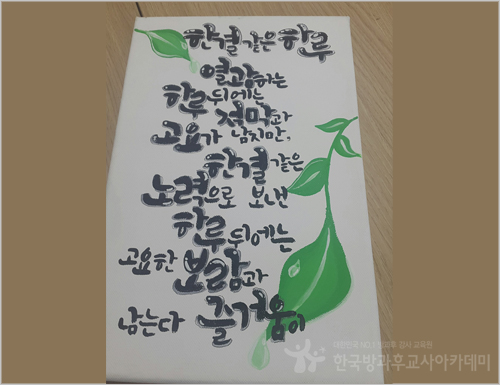 한결같은 하루
열광하는
하루 뒤에는
적막과
고요가 남지만,
한결같은
노력으로 보낸
하루 뒤에는
고요한 보람과
남는다 즐거움이
대한민국 NO.1 방과후 강사 교육원
한국방과후교사아카데미